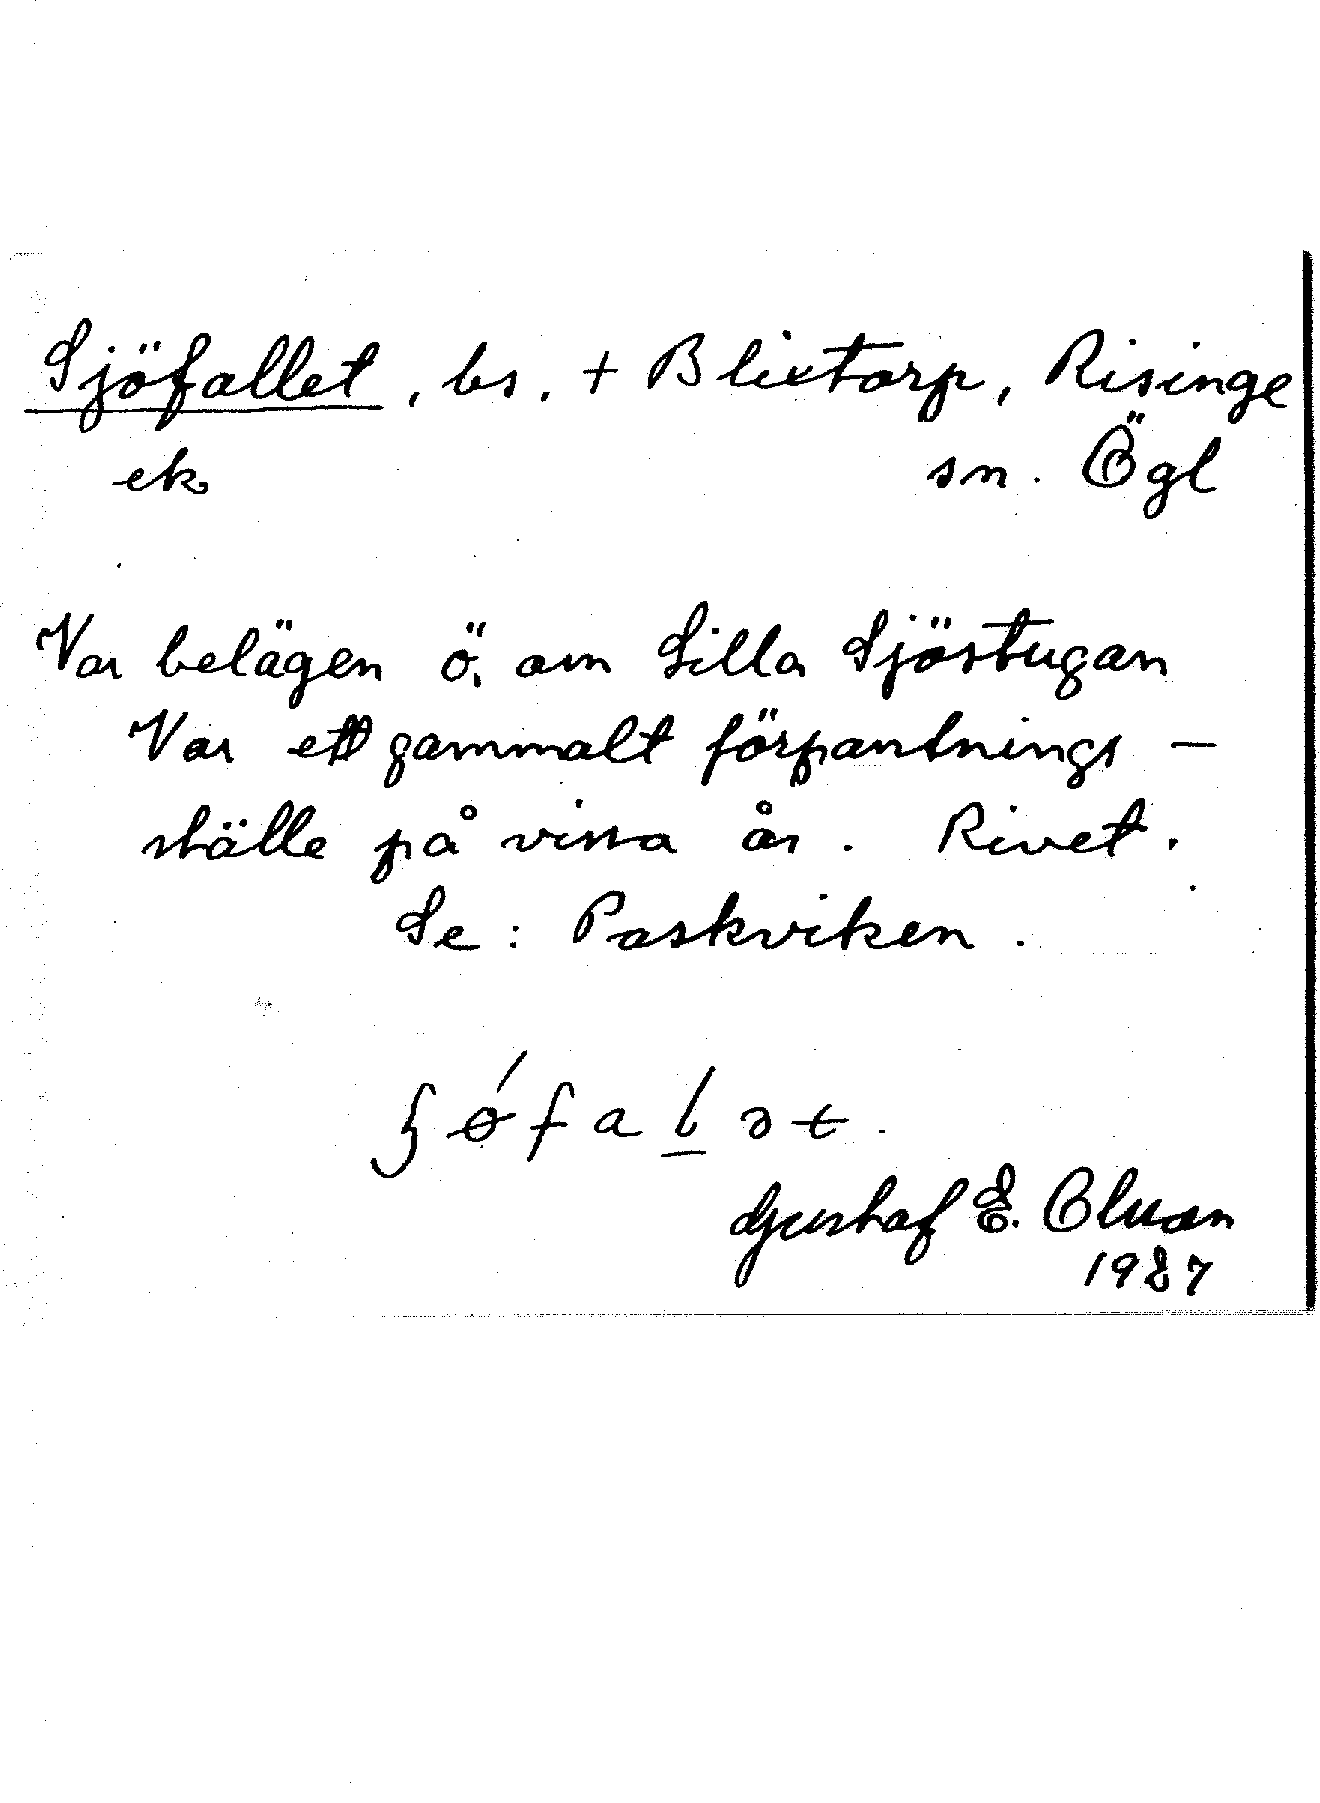 Sjöfallet, bs. + Blixtorp, Risinge
ek sn. Ögl
Var belägen ö. om Lilla Sjöstugan
Var ett gammalt förpantnings-
ställe på vissa år. Rivet.
Se: Paskviken.
ʃǿfalət.
Gustaf E. Olsson
1987